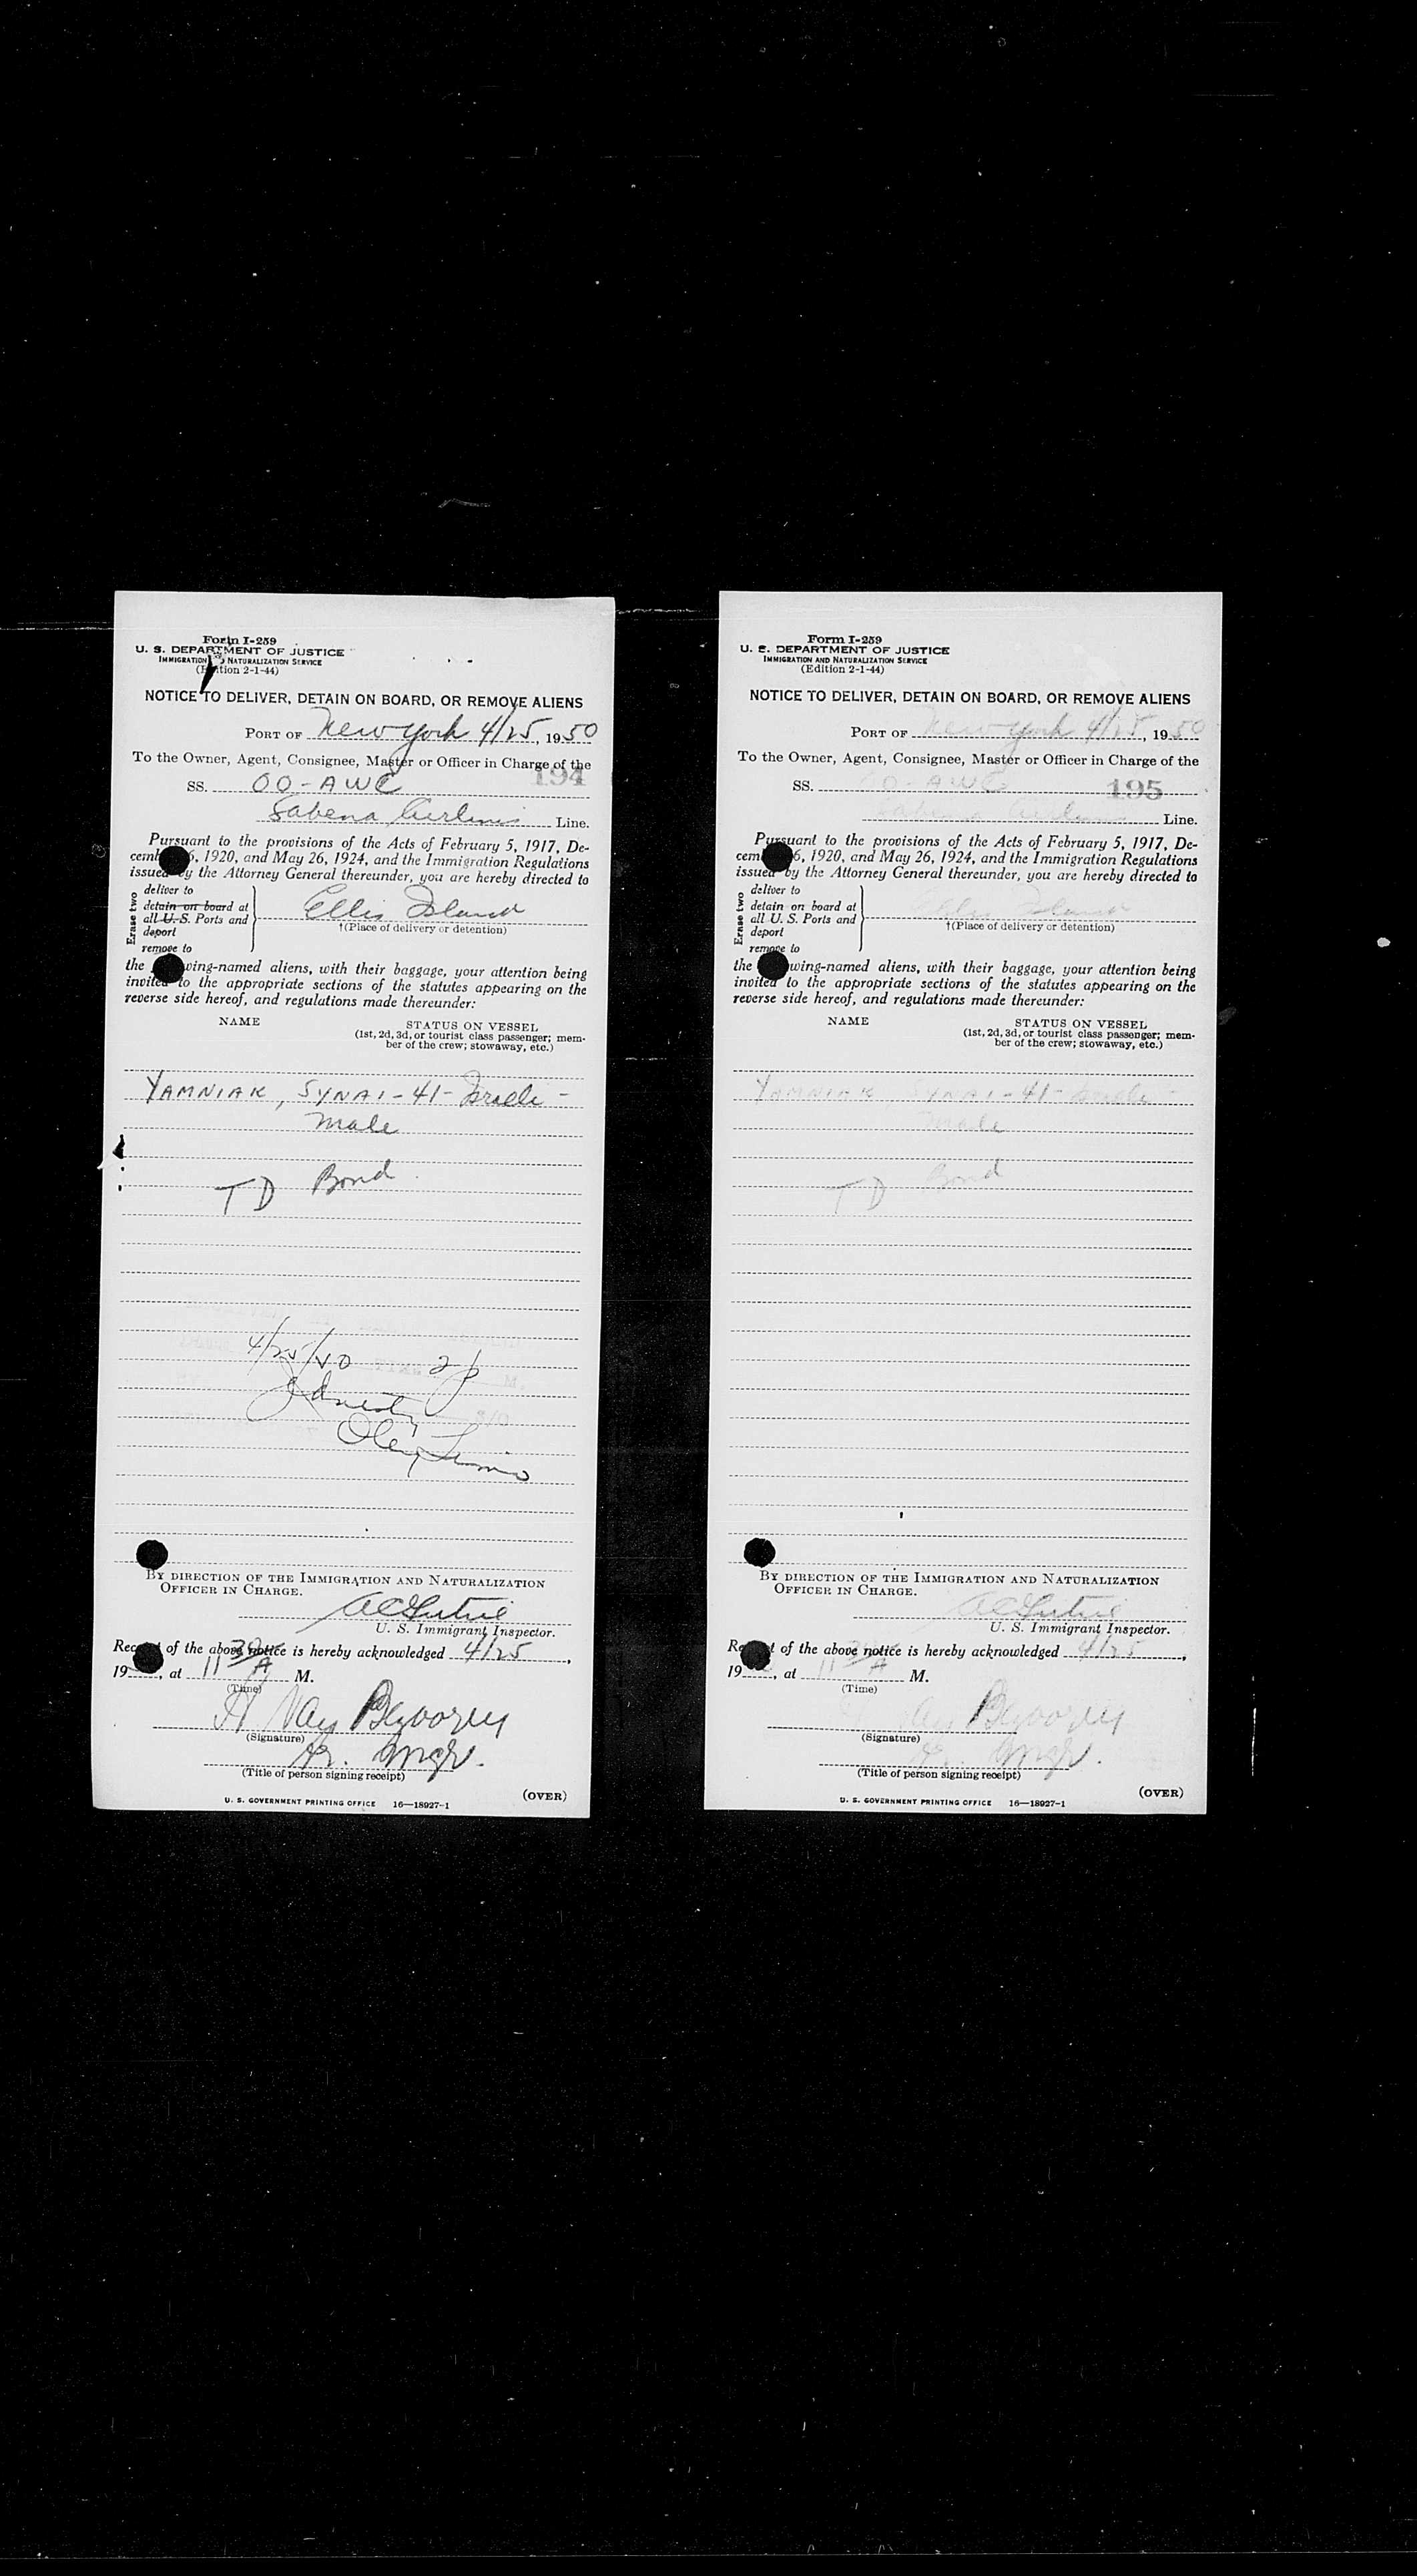 Form I-259
U. S. DEPARTMENT OF JUSTICE
IMMIGRATION NATURALIZATION SERVICE
(Edition 2-1-44)
NOTICE TO DELIVER, DETAIN ON BOARD, OR REMOVE ALIENS
PORT OF New York 4/25, 1950
To the Owner, Agent, Consignee, Master or Officer in Charge of the
194
SS. OO-AWC
Sabena Airlines Line.
Pursuant to the provisions of the Acts of February 5, 1917, De-
cember 6, 1920, and May 26, 1924, and the Immigration Regulations
issued by the Attorney General thereunder, you are hereby directed to
Erase two
deliver to
detain on board at
all U. S. Ports and
deport
remove to
Ellis Island
†(Place of delivery or detention)
the following-named aliens, with their baggage, your attention being
invited to the appropriate sections of the statutes appearing on the
reverse side hereof, and regulations made thereunder:
NAME STATUS ON VESSEL
(1st, 2d, 3d, or tourist class passenger; mem-
ber of the crew; stowaway, etc.)
YAMNIAK, SYNAI - 41 - Israeli -
Male
TD Bond
4/25/50 2p
BY DIRECTION OF THE IMMIGRATION AND NATURALIZATION
OFFICER IN CHARGE.
U. S. Immigrant Inspector.
Receipt of the above notice is hereby acknowledged 4/25,
19, at 11 30 A M.
(Time)
H Van
(Signature)
Mgr.
(Title of person signing receipt)
(OVER)
U. S. GOVERNMENT PRINTING OFFICE 16—18927-1
Form I-259
U. S. DEPARTMENT OF JUSTICE
IMMIGRATION AND NATURALIZATION SERVICE
(Edition 2-1-44)
NOTICE TO DELIVER, DETAIN ON BOARD, OR REMOVE ALIENS
PORT OF New York 4/25, 1950
To the Owner, Agent, Consignee, Master or Officer in Charge of the
SS. OO-AWC 195
Sabena Airlines Line.
Pursuant to the provisions of the Acts of February 5, 1917, De-
cember 6, 1920, and May 26, 1924, and the Immigration Regulations
issued by the Attorney General thereunder, you are hereby directed to
Erase two
deliver to
detain on board at
all U. S. Ports and
deport
remove to
Ellis Island
†(Place of delivery or detention)
the following-named aliens, with their baggage, your attention being
invited to the appropriate sections of the statutes appearing on the
reverse side hereof, and regulations made thereunder:
NAME STATUS ON VESSEL
(1st, 2d, 3d, or tourist class passenger; mem-
ber of the crew; stowaway, etc.)
YAMNIAK, SYNAI - 41 - Israeli -
Male
TD Bond
BY DIRECTION OF THE IMMIGRATION AND NATURALIZATION
OFFICER IN CHARGE.
U. S. Immigrant Inspector.
Receipt of the above notice is hereby acknowledged 4/25,
19, at 11 30 A M.
(Time)
Van
(Signature)
Mgr.
(Title of person signing receipt)
(OVER)
U. S. GOVERNMENT PRINTING OFFICE 16—18927-1